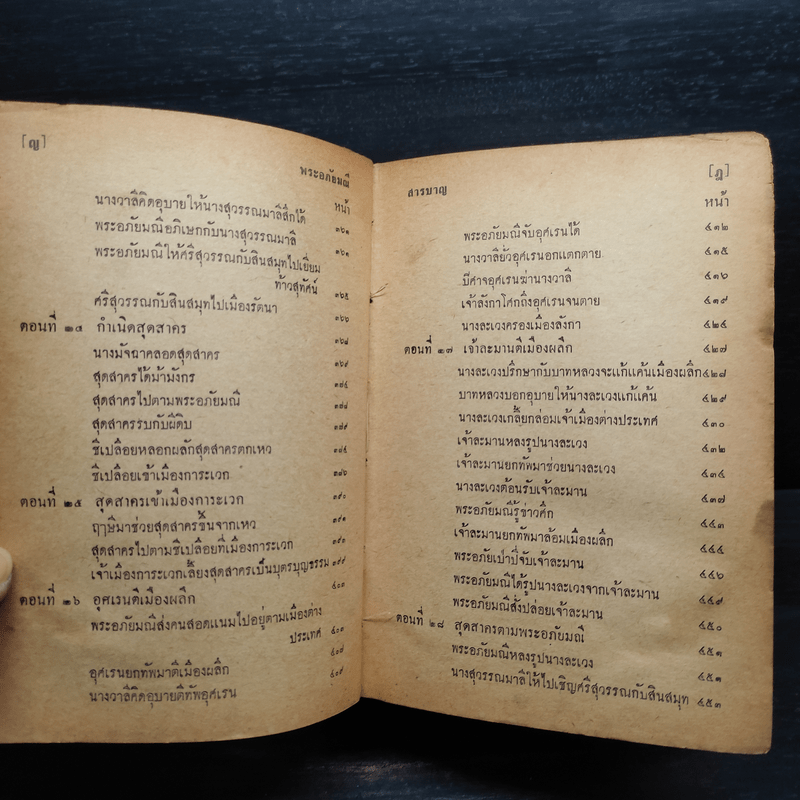 [ญ]
พระอภัยมณี
หน้า
นางวาลีคิดอุบายให้นางสุวรรณมาลีสึกได้ ๓๖๑
พระอภัยมณีอภิเษกกับนางสุวรรณมาลี ๓๖๑
พระอภัยมณีให้ศรีสุวรรณกับสินสมุทไปเยี่ยม
ท้าวสุทัศน์ ๓๖๕
ศรีสุวรรณกับสินสมุทไปเมืองรัตนา ๓๖๖
ตอนที่ ๒๔ กำเนิดสุดสาคร ๓๖๘
นางมัจฉาคลอดสุดสาคร ๓๖๙
สุดสาครได้ม้ามังกร
สุดสาครไปตามพระอภัยมณี
สุดสาครรบกับผีดิบ
ชีเปลือยหลอกผลักสุดสาครตกเหว
ชีเปลือยเข้าเมืองการะเวก
ตอนที่ ๒๕ สุดสาครเข้าเมืองการะเวก ๓๙๐
ฤๅษีมาช่วยสุดสาครขึ้นจากเหว ๓๙๑
สุดสาครไปตามชีเปลือยที่เมืองการะเวก
เจ้าเมืองการะเวกเลี้ยงสุดสาครเป็นบุตรบุญธรรม ๓๙๙
ตอนที่ ๒๖ อุศเรนตีเมืองผลึก ๔๐๓
พระอภัยมณีส่งคนสอดแนมไปอยู่ตามเมืองต่าง
ประเทศ ๔๐๓
อุศเรนยกทัพมาตีเมืองผลึก ๔๐๗
นางวาลีคิดอุบายตีทัพอุศเรน ๔๐๙
สารบาญ
[ฎ]
หน้า
พระอภัยมณีจับอุศเรนได้ ๔๑๒
นางวาลียั่วอุศเรนอกแตกตาย ๔๑๕
ปีศาจอุศเรนฆ่านางวาลี ๔๑๖
เจ้าลังกาโศกถึงอุศเรนจนตาย ๔๑๙
นางละเวงครองเมืองลังกา ๔๒๔
ตอนที่ ๒๗ เจ้าละมานตีเมืองผลึก ๔๒๗
นางละเวงปรึกษากับบาทหลวงจะแก้แค้นเมืองผลึก ๔๒๗
บาทหลวงบอกอุบายให้นางละเวงแก้แค้น ๔๒๙
นางละเวงเกลี้ยกล่อมเจ้าเมืองต่างประเทศ ๔๓๐
เจ้าละมานหลงรูปนางละเวง ๔๓๒
เจ้าละมานยกทัพมาช่วยนางละเวง ๔๓๔
นางละเวงต้อนรับเจ้าละมาน ๔๓๗
พระอภัยมณีรู้ข่าวศึก ๔๔๓
เจ้าละมานยกทัพมาล้อมเมืองผลึก ๔๔๔
พระอภัยเป่าปี่จับเจ้าละมาน ๔๔๖
พระอภัยมณีได้รูปนางละเวงจากเจ้าละมาน ๔๔๙
พระอภัยมณีสั่งปล่อยเจ้าละมาน ๔๕๐
ตอนที่ ๒๘ สุดสาครตามพระอภัยมณี ๔๕๑
พระอภัยมณีหลงรูปนางละเวง ๔๕๑
นางสุวรรณมาลีให้ไปเชิญศรีสุวรรณกับสินสมุท ๔๕๓